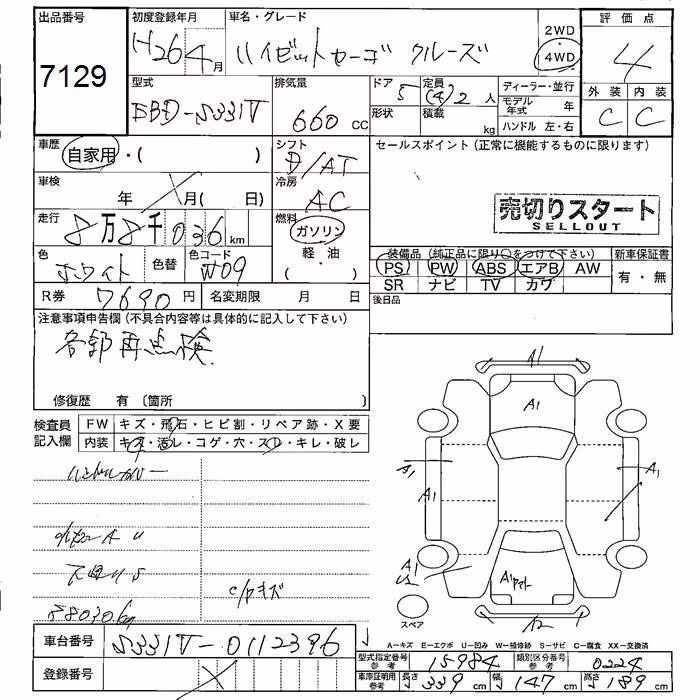 出品番号
7129
初度登録年月
H26 4月
車名・グレード
ハイゼットカーゴ クルーズ
2WD
4WD
評価点
4
外装 内装
C C
型式
EBD-S331V
排気量
660 cc
ドア 5
形状
定員 (4)2 人
積載 kg
ディーラー・並行
モデル年式 年
ハンドル 左・右
車歴
自家用・( )
シフト
D/AT
車検
年 月( 日)
冷房
AC
走行
8万8千036km
燃料
ガソリン
軽・油
( )
色
ホワイト
色替
色コード
W09
R券 7690円
名変期限 月 日
セールスポイント (正常に機能するものに限ります)
売切りスタート
SELLOUT
装備品 (純正品に限り○をつけて下さい)
新車保証書
PS PW ABS エアB AW
SR ナビ TV カワ
有・無
後日品
注意事項申告欄 (不具合内容等は具体的に記入して下さい)
各部再点検
修復歴 有 〔箇所 〕
検査員記入欄
FW キズ・飛石・ヒビ割・リペア跡・X要
内装 キズ・汚レ・コゲ・穴・スレ・キレ・破レ
A1
A1
A1
A1
A1
A1
A2
スペア
車台番号 S331V-0112396
登録番号
A−キズ E−エクボ U−凹み W−補修跡 S−サビ C−腐食 XX−交換済
型式指定番号 参考 15984
類別区分番号 参考 0224
車庫証明用 参考 長さ 339 cm 幅 147 cm 高さ 189 cm